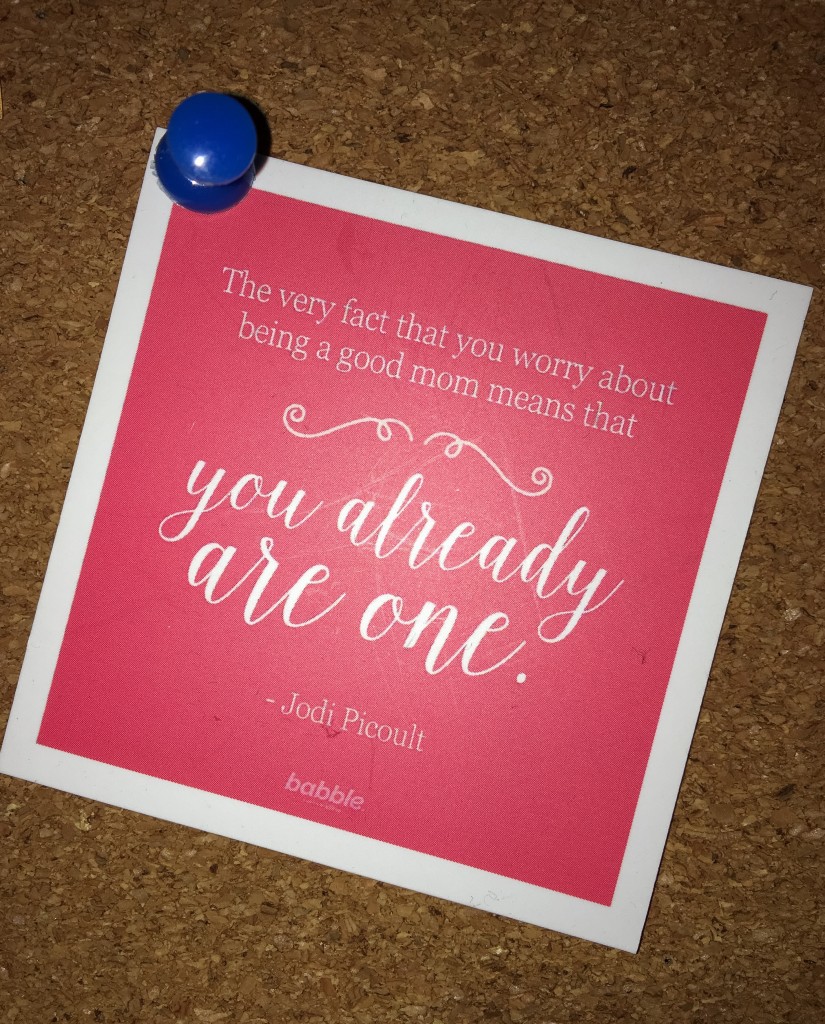 The very fact that you worry about
being a good mom means that
you already
are one.
- Jodi Picoult
babble